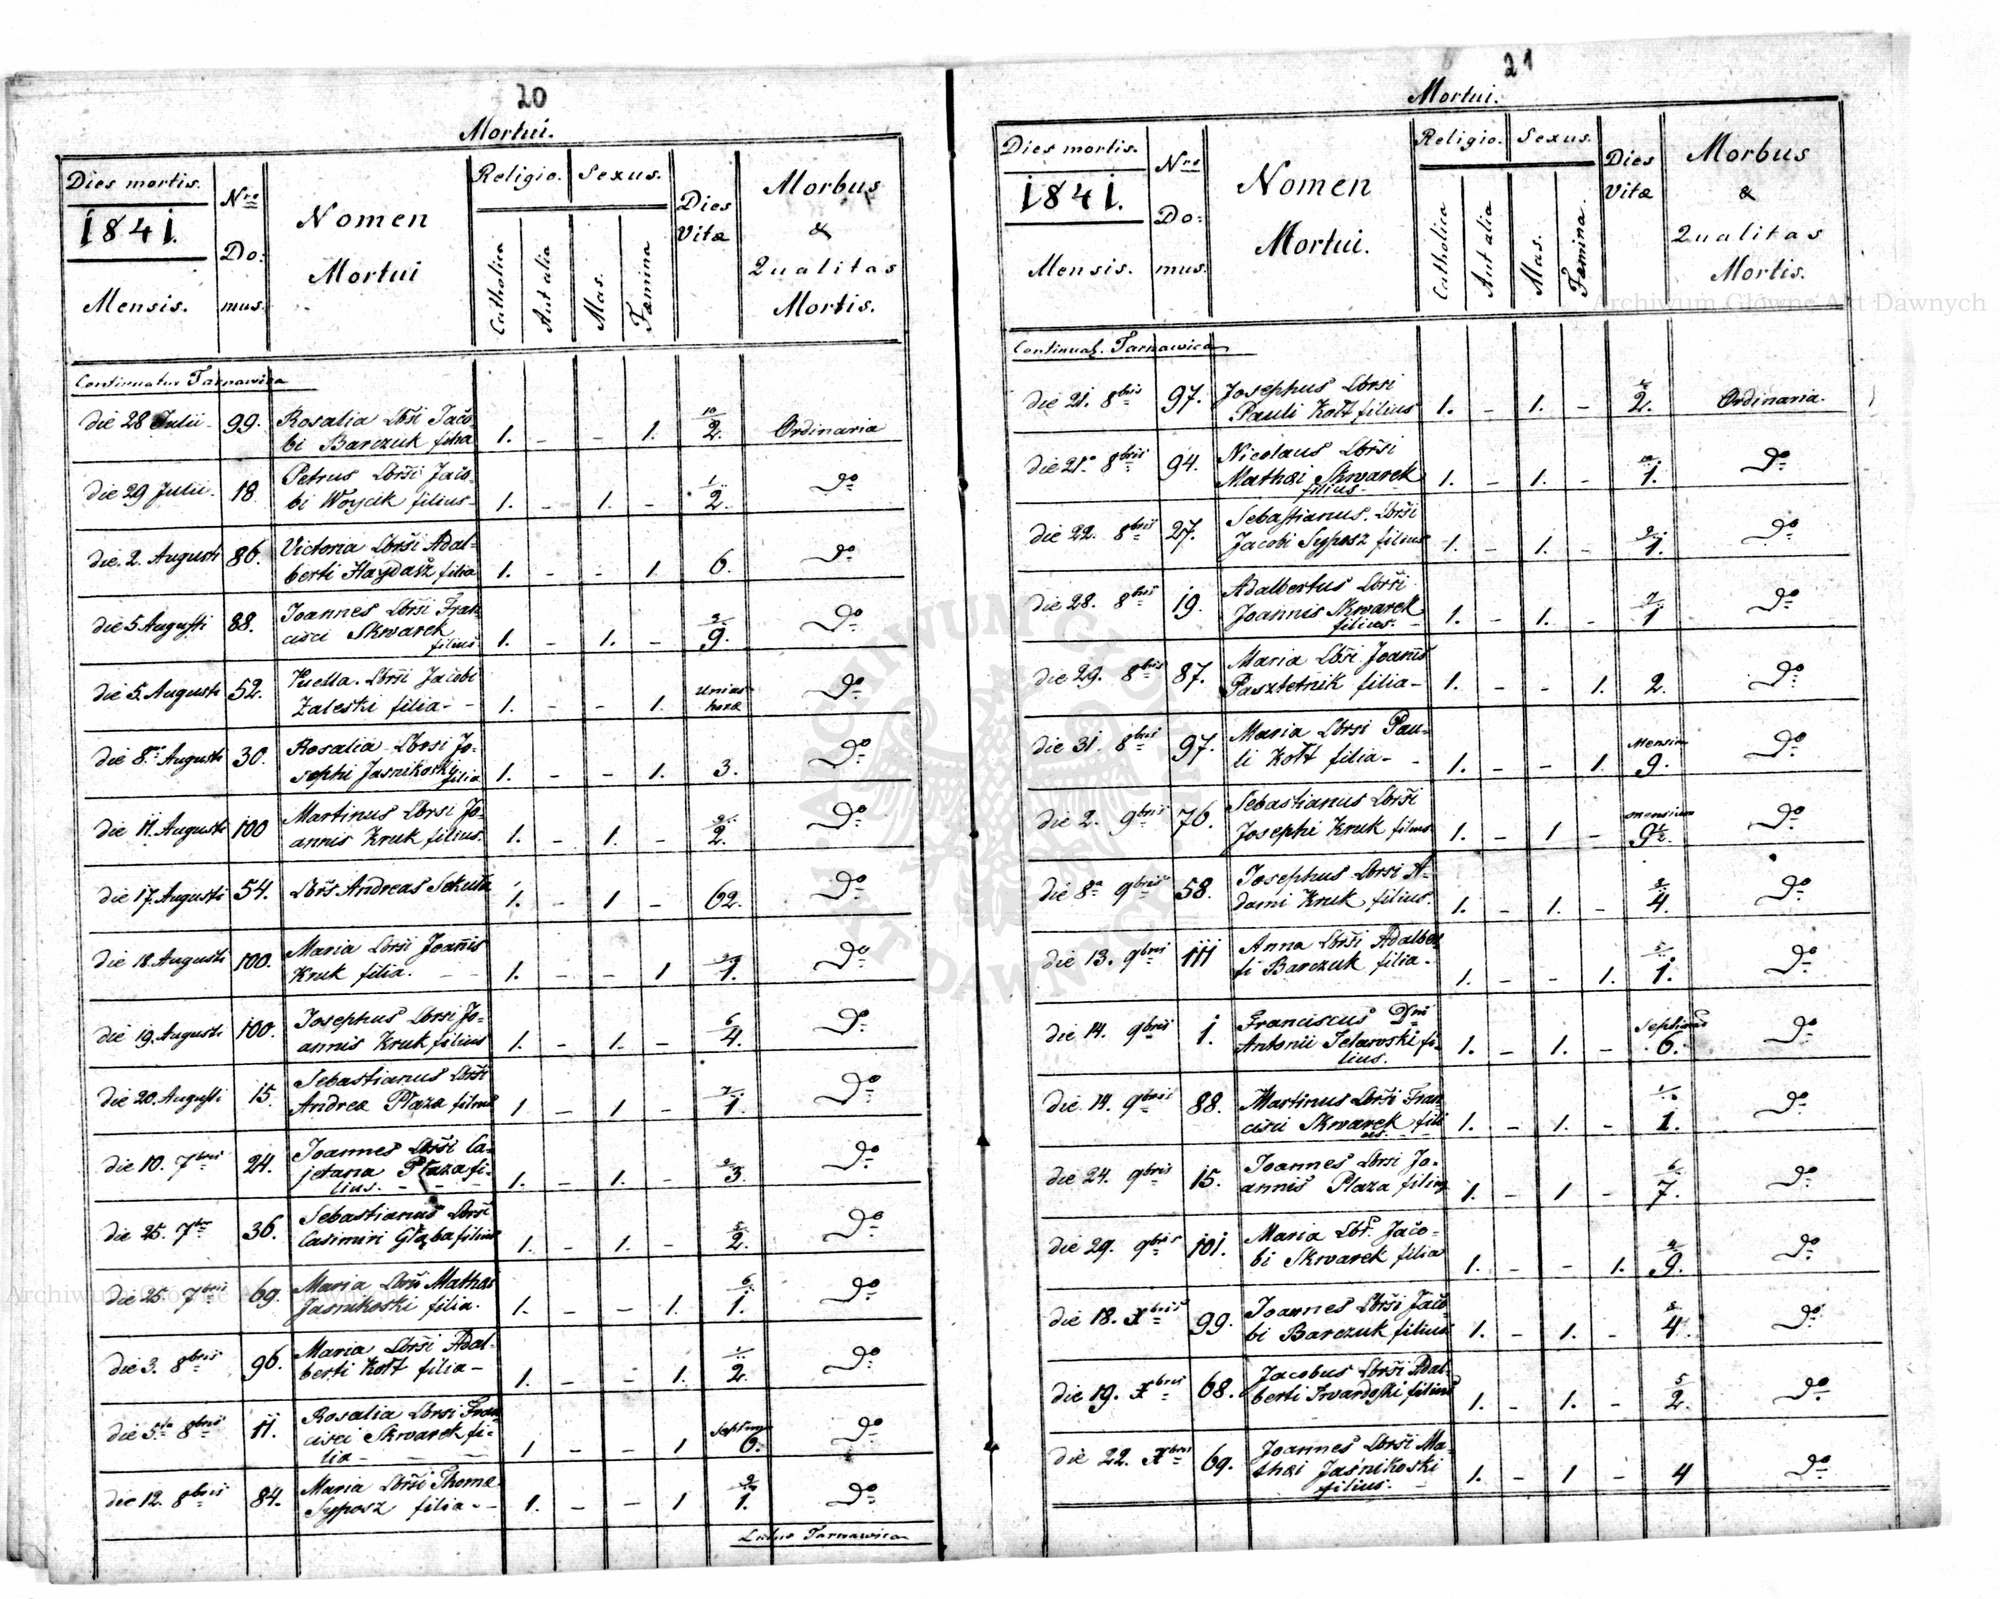 20
Mortui.
Dies mortis. Nro Nomen Religio. Sexus. Dies Morbus
1841. Do: Mortui Catholica Aut alia Mas. Fæmina Vitæ & Qualitas
Mensis. mus. Mortis.
Continuatur Tarnawica
die 28 Julii 99. Rosalia Lbrši Jaco
bi Barczuk filia 1. - - 1. 10/2. Ordinaria
die 29 Julii. 18 Petrus Lbrši Jaco-
bi Woycik filius- 1. - 1. - 1/2. Do
die. 2. Augusti 86. Victoria Lbrši Adal-
berti Haydasz filia 1. - - 1. 6. Do
die 5 Augusti 88. Joannes Lbrši Fran
cisci Skwarek
filius 1. - 1. - 9. Do
die 5. Augusti 52. Puella. Lbrši Jacobi
Zaleski filia - - 1. - - 1. unius
horæ Do
die 8. Augusti 30. Rosalia Lbrsi Jo-
sephi Jasnikoski
filia 1. - - 1. 3. Do
die 11. Augusti 100 Martinus Lbrsi Jo-
annis Kruk filius. 1. - 1. - 2. Do
die 17. Augusti 54. Lbrs Andreas Sekuła 1. - 1 - 62. Do
die 18. Augusti 100. Maria Lbrši Joanis
Kruk filia. - - 1. - - 1 1. Do
die 19. Augusti 100. Josephus Lbrsi Jo-
annis Kruk filius 1. - 1. - 6/4. Do
die 20. Augusti 15. Sebastianus Lbrši
Andreæ Płaza filius 1 - 1 - 1. Do
die 10. 7bris 24. Joannes Lbrši Ca-
jetana Płaza fi-
lius. - - - 1. - 1. - 3. Do
die 25. 7bris 36. Sebastianus Lbrši
Casimiri Głąba filius 1. - 1. - 2. Do
die 25. 7bris 69. Maria Lbrši Mathæi
Jasnikoski filia. 1. - - 1. 6/1. Do
die 3. 8bris 96. Maria Lbrši Adal-
berti Kott filia - 1. - - 1. 1/2. Do
die 5ta 8bris 11. Rosalia Lbrsi Fran
cisci Skwarek fi-
lia - 1 - - 1 6. Do
die 12. 8bris 84. Maria Lbrši Thomæ
Syposz filia - - 1. - - 1 1. Do
Latus Tarnawica
21
Mortui.
Dies mortis. Nro Nomen Religio. Sexus. Dies Morbus
1841. Do: Mortui. Catholica Aut alia Mas. Fæmina. Vitæ & Qualitas
Mensis. mus. Mortis.
Continuat. Tarnawica
die 21. 8bris 97. Josephus Lbrsi
Pauli Kott filius 1. - 1. - 2. Ordinaria.
die 21. 8bris 94. Nicolaus Lbrši
Mathæi Skwarek
filius- 1. - 1. - 10/1. Do
die 22. 8bris 27. Sebastianus. Lbrši
Jacobi Syposz filius 1. - 1. - 1. Do
die 28. 8bris 19. Adalbertus Lbrši
Joannis Skwarek
filius. - 1. - 1. - 1 Do
die 29. 8bris 87. Maria Lbrši Joanis
Pasztetnik filia - 1. - - 1. 2. Do
die 31. 8bris 97. Maria Lbrsi Pau-
li Kott filia - - 1. - - 1. Mensium
9. Do
die 2. 9bris 76. Sebastianus Lbrši
Josephi Kruk filius 1. - 1 - mensium
9½. Do
die 8a 9bris 58. Josephus Lbrsi A-
dami Kruk filius. 1. - 1. - 4. Do
die 13. 9bris 111 Anna Lbrši Adalber
ti Barczuk filia. 1. - - 1. 5/1. Do
die 14. 9bris 1. Franciscus Dni
Antonii Telawski fi-
lius. 1. - 1. - 6. Do
die 14. 9bris 88. Martinus Lbrši Fran
cisci Skwarek fili
us. - - 1. - 1. - 1. Do
die 24. 9bris 15. Joannes Lbrsi Jo-
annis Płaza filius 1. - 1 - 6/7. Do
die 29. 9bris 101. Maria Lbr. Jaco-
bi Skwarek filia 1. - - 1. 9. Do
die 18. Xbris 99. Joannes Lbrši Jaco-
bi Barczuk filius 1. - 1. - 4. Do
die 19. Xbris 68. Jacobus Lbrši Adal-
berti Twardoski filius 1. - 1. - 5/2. Do
die 22. Xbris 69. Joannes Lbrši Ma-
thæi Jaśnikoski
filius. - 1. - 1 - 4 Do
Archiwum Główne Akt Dawnych